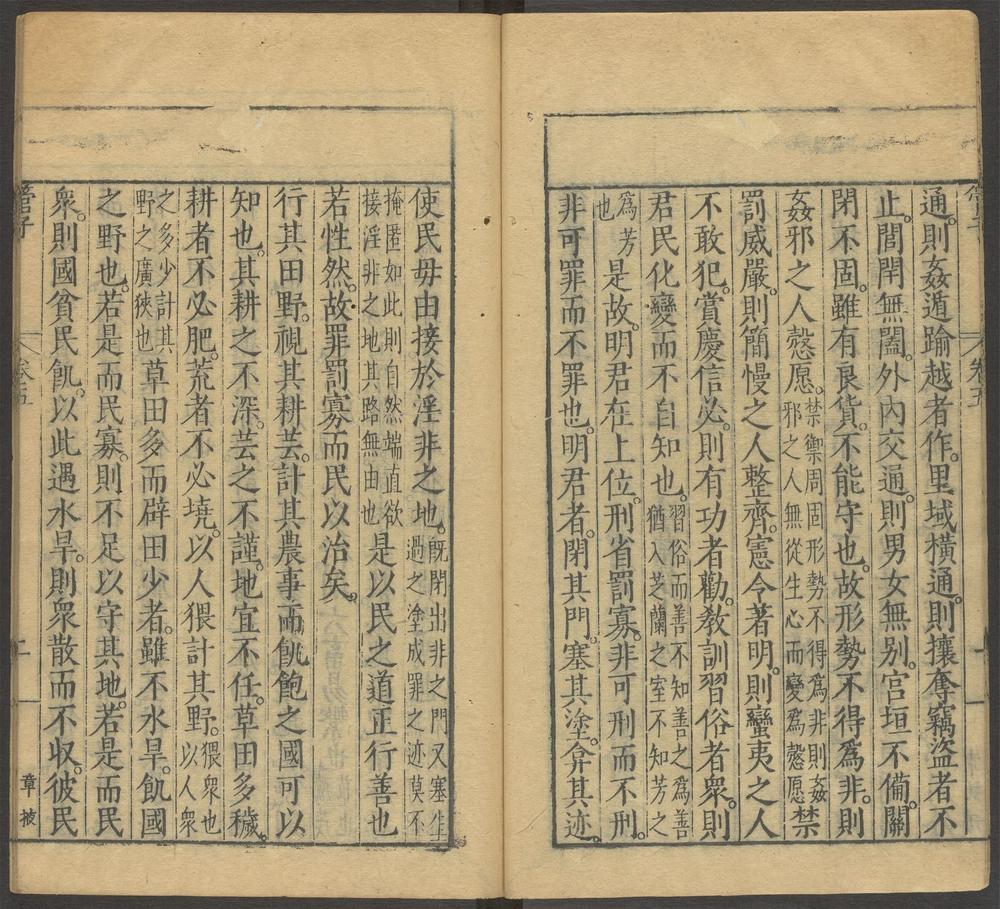 通。則姦遁踰越者作。里域橫通。則攘奪竊盜者不
止。閭閈無闔。外內交通。則男女無别。宮垣不備。關
閉不固。雖有良貨。不能守也。故形勢不得爲非。則
姦邪之人愨愿。禁禦周固形勢不得爲非則姦邪之人無從生心而變爲愨愿禁
罰威嚴。則簡慢之人整齊。憲令著明。則蠻夷之人
不敢犯。賞慶信必。則有功者勸。教訓習俗者衆。則
君民化變而不自知也。習俗而善不知善之爲善猶入芝蘭之室不知芳之
爲芳也是故。明君在上位。刑省罰寡。非可刑而不刑。
非可罪而不罪也。明君者。閉其門。塞其塗。弇其迹。
卷五
一
使民毋由接於淫非之地。旣閉出非之門又塞生過之塗成罪之迹莫不
掩匿如此則自然端直欲接淫非之地其路無由也是以民之道正行善也
若性然。故罪罰寡而民以治矣。
行其田野。視其耕芸。計其農事而飢飽之國可以
知也。其耕之不深。芸之不謹。地宜不任。草田多穢。
耕者不必肥。荒者不必墝。以人猥計其野。猥衆也以人衆
之多少計其野之廣狹也草田多而辟田少者。雖不水旱。飢國
之野也。若是而民寡。則不足以守其地。若是而民
衆。則國貧民飢。以此遇水旱。則衆散而不收。彼民
管子
卷五
二
章掖